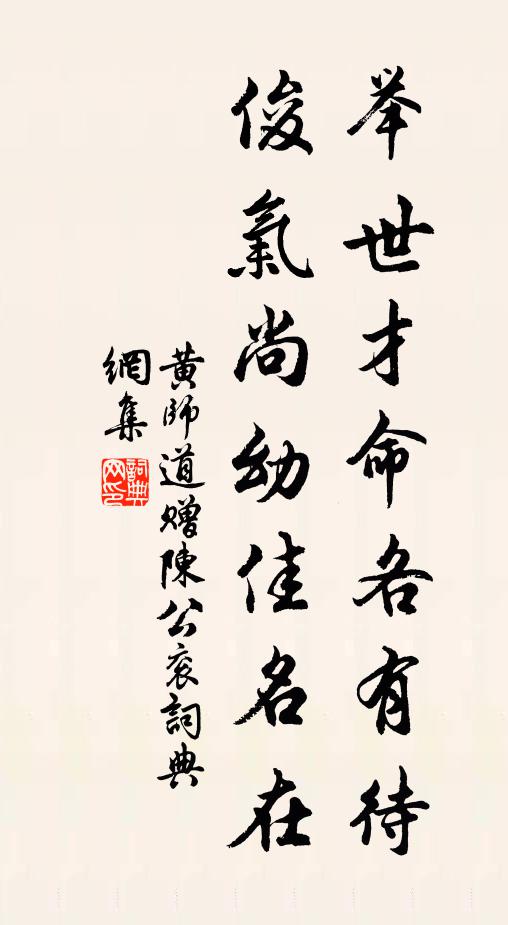 举世才命各有待
俊氣尚幼佳名在
黄師道赠陳公衮詞典
網集
詞典
网印